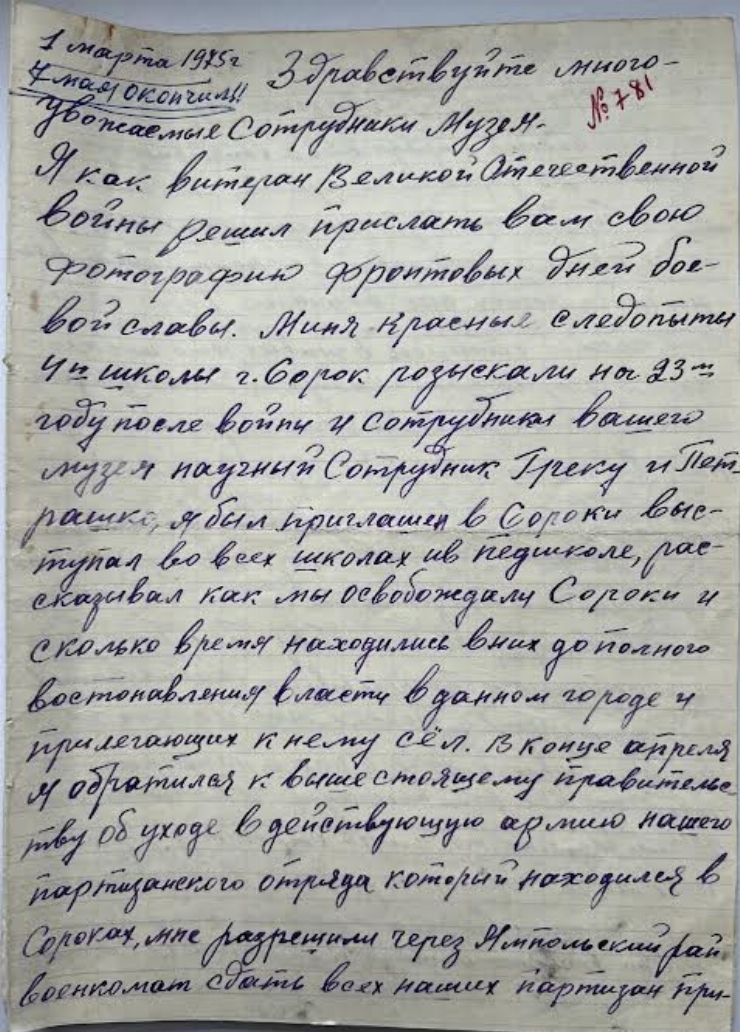 1 марта 1975г
7 мая окончил!! Здравствуйте много-
№ 781
уважаемые Сотрудники Музея.
Я как витеран Великой Отечественной
войны решил прислать вам свою
фотографию фронтовых дней бое-
вой славы. Миня красные следопыты
4й школы г. Сорок розыскали на 23м
году после войны и сотрудники вашего
музея научный Сотрудник Греку и Пет-
рашко, я был приглашен в Сороки выс-
тупал во всех школах и в педшколе, рас-
сказывал как мы освобождали Сороки и
сколько время находились в них до полного
востонавления власти в данном городе и
прилегающих к нему сёл. В конце апреля
я обратился к вышестоящему правительс
тву об уходе в действующую армию нашего
партизанского отряда который находился в
Сороках, мне разрешили через Ямпольский рай
военкомат сдать всех наших партизан при-